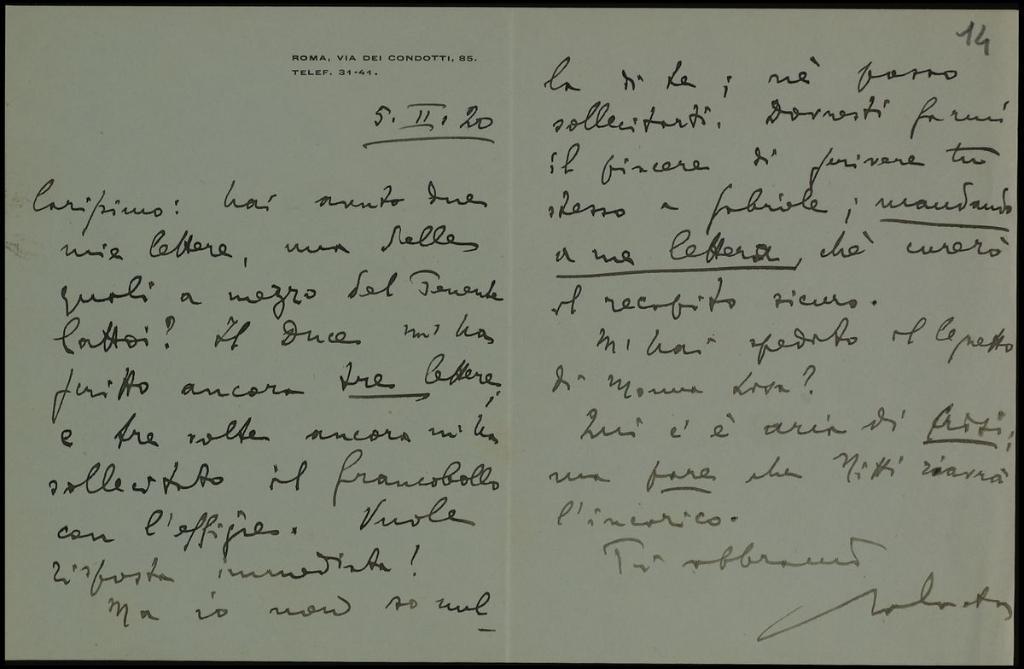 14
ROMA, VIA DEI CONDOTTI, 85.
TELEF. 31-41.
5. II. 20
Carissimo: hai avuto due
mie lettere, una delle
quali a mezzo del Tenente
Il Duce mi ha
scritto ancora tre lettere;
e tre volte ancora mi ha
sollecitato il francobollo
con l'effigie. Vuole
risposta immediata!
Ma io non so nul-
la di te; nè posso
sollecitarti. Dovresti farmi
il piacere di scrivere tu
stesso a Gabriele; mandando
a me lettera, chè curerò
il recapito sicuro.
Mi hai spedito il
di Monna Lisa?
Qui c'è aria di crisi;
ma pare che Nitti riavrà
l'incarico.
Ti abbraccio